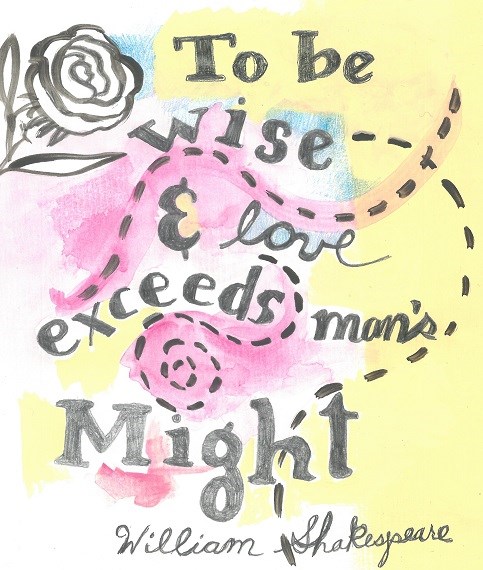 To be
wise
& love
exceeds man's
Might
William Shakespeare